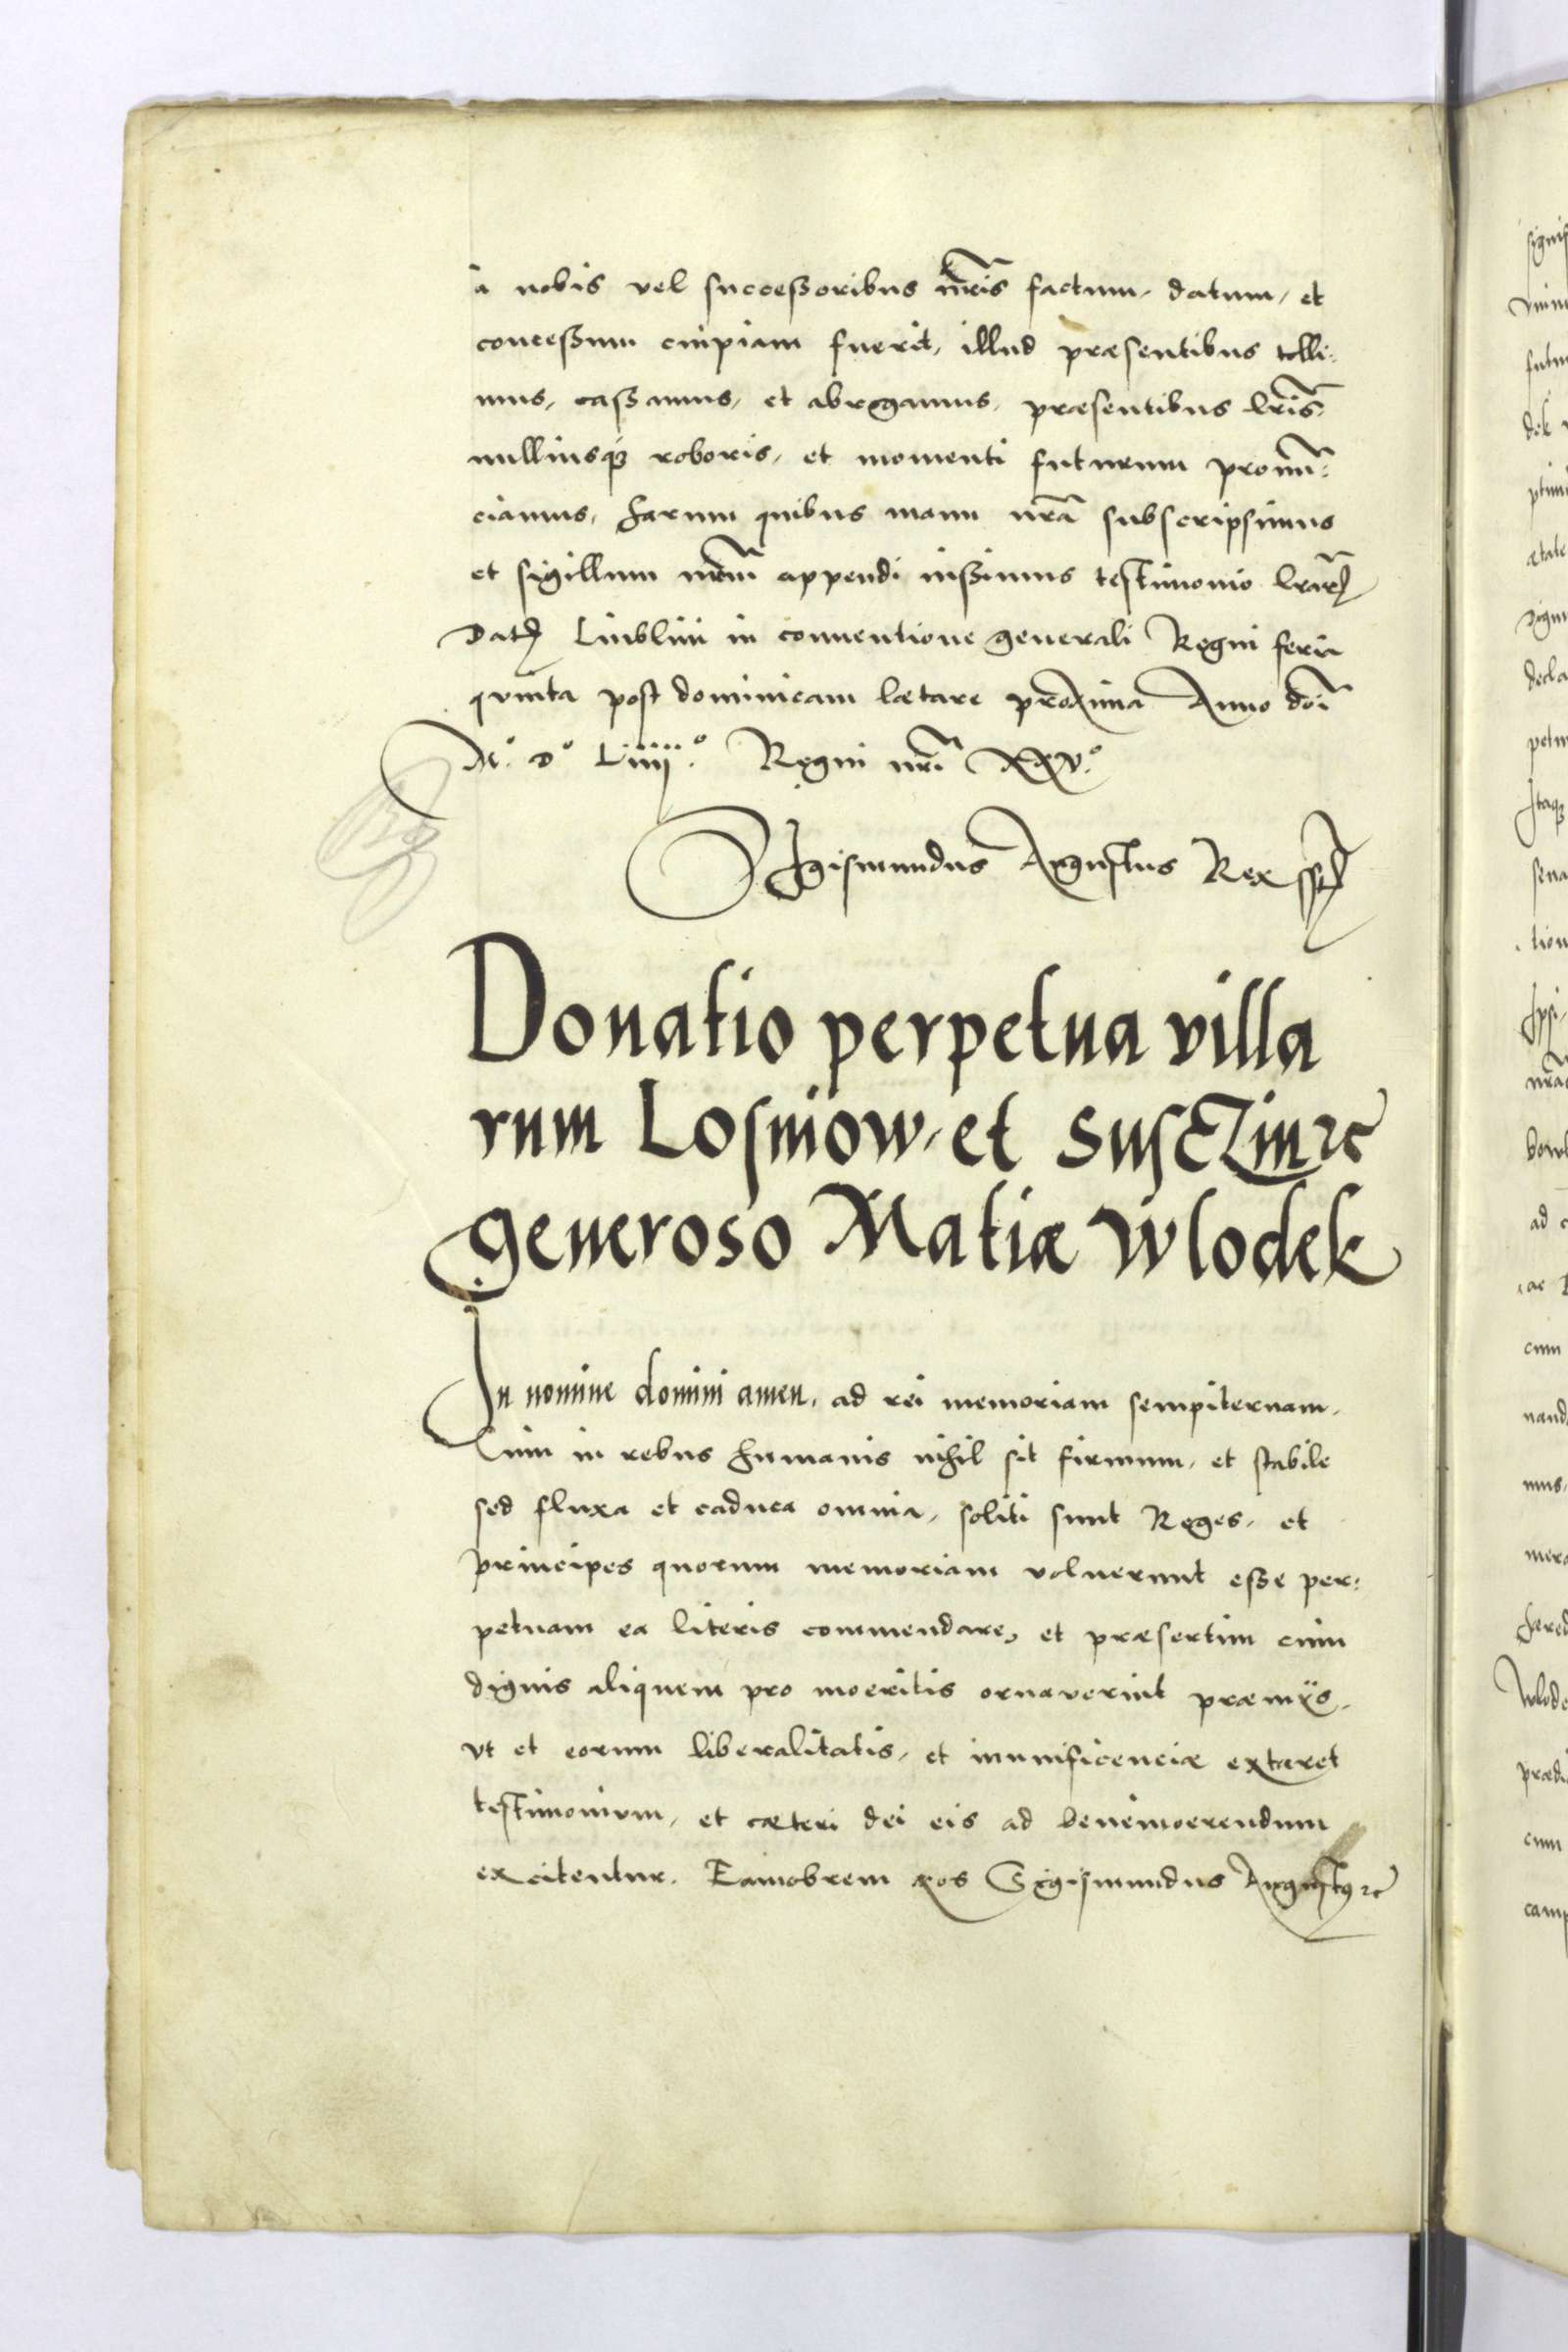 à nobis vel successoribus nr̃is factum, datum, et
concessum cuipiam fuerit, illud præsentibus tolli:
mus, cassamus, et abrogamus, præsentibus lr̃is,
nulliusq; roboris, et momenti futurum pronũ:
ciamus, harum quibus manu nr̃a subscripsimus
et sigillum nr̃um appendi iussimus testimonio lr̃arꝝ
Datꝝ Liublini in conuentione generali Regni feria
quinta post dominicam lætare proxima Anno dñi
M.° D° Liiij.° Regni nr̃i XXV.°
Sigismundus Augustus Rex sst
Donatio perpetua villa
rum Losniow, et Susczin ⁊c
generoso Matiæ Wlodek
In nomine domini amen, ad rei memoriam sempiternam,
Cum in rebus humanis nihil sit firmum, et stabile
sed fluxa et caduca omnia, soliti sunt Reges, et
principes quorum memoriam voluerunt esse per:
petuam ea literis commendare, et præsertim cum
dignis aliquem pro moeritis ornaverint præmijs,
vt et eorum liberalitatis, et munificenciæ extaret
testimonium, et cæteri dei eis ad benemoerendum
excitentur. Eamobrem nos Sigismundus Augustꝰ ⁊c
signi
futu
dek
ætate
decla
petu
Itaq;
sena
tion
ad
cum
nand
mus,
hered
Wlode
prædi
cum
camp